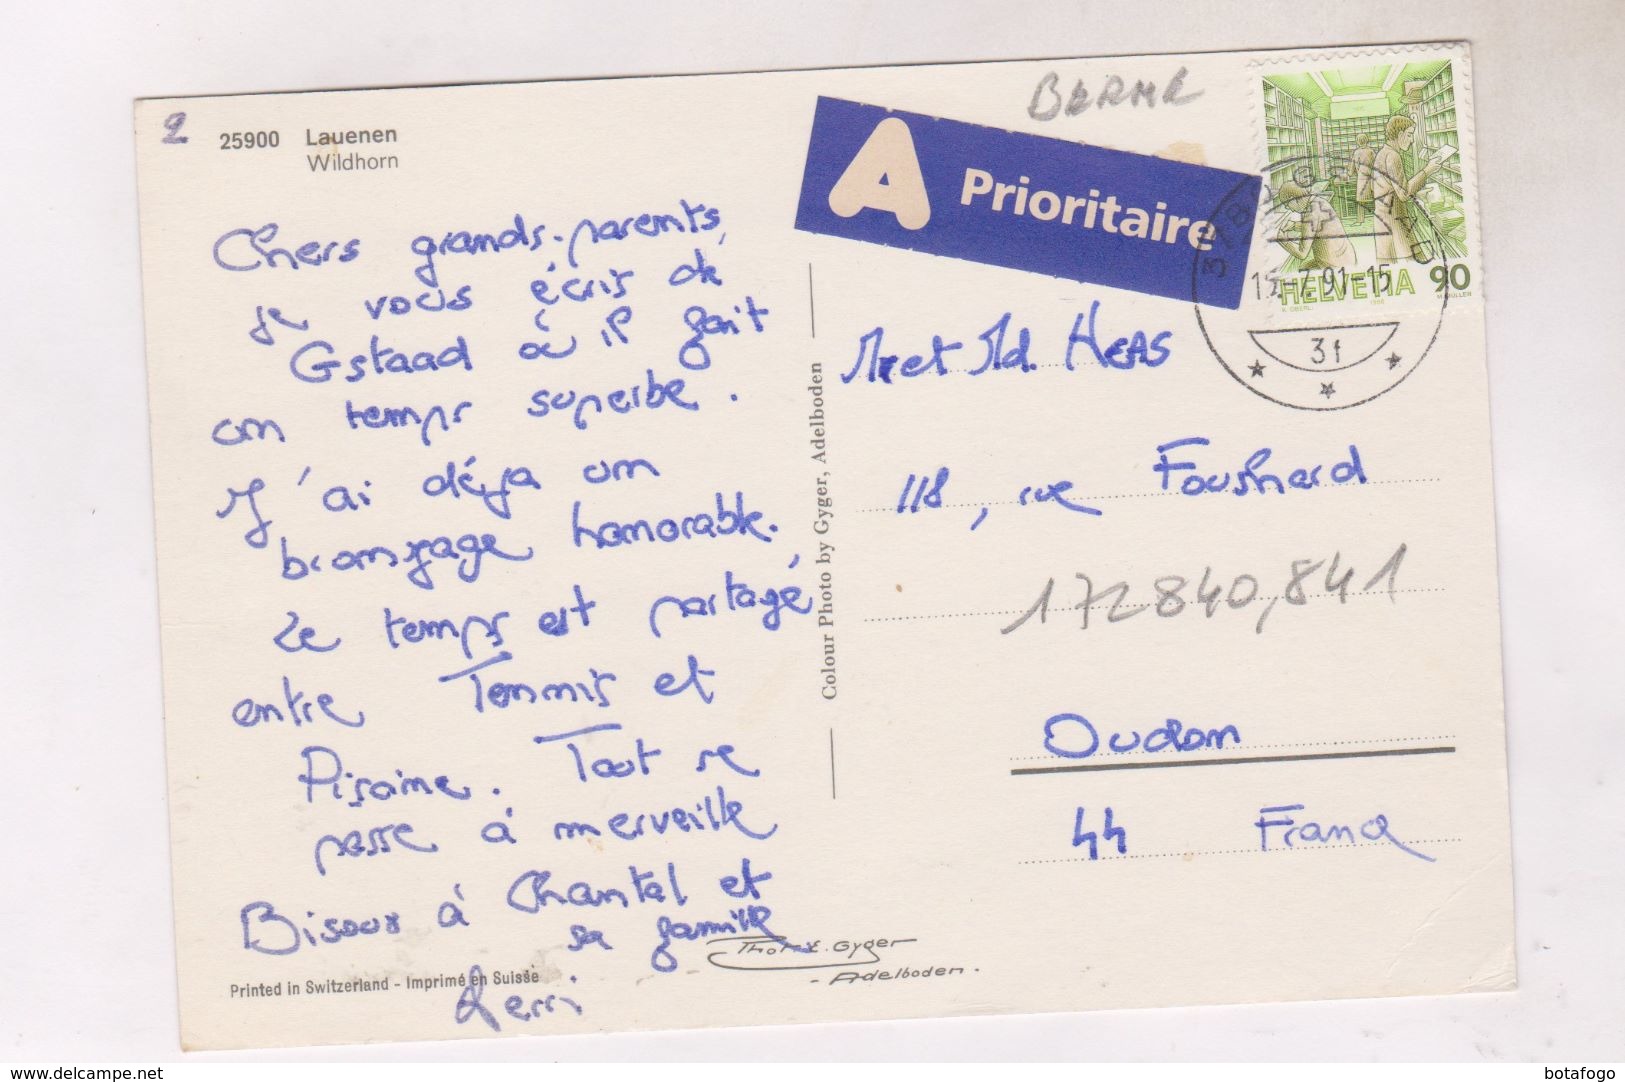 2
25900 Lauenen
Wildhorn
Chers grands-parents,
je vous écris de
Gstaad où il fait
un temps superbe.
J'ai déja un
bronzage honorable.
Le temps est partagé,
entre Tennis et
Piscine. Tout se
passe à merveille
Bisoux à Chantal et
sa famille
Printed in Switzerland - Imprimé en Suisse
Colour Photo by Gyger, Adelboden
Gyger
Adelboden.
BERNE
A Prioritaire
3780 GSTAAD
-7.91-15
3f
HELVETIA 90
K. OBERLI 1986 M. MÜLLER
Mr et Md. HEAS
118, rue
172840,841
Oudon
44 France
www.delcampe.net
botafogo